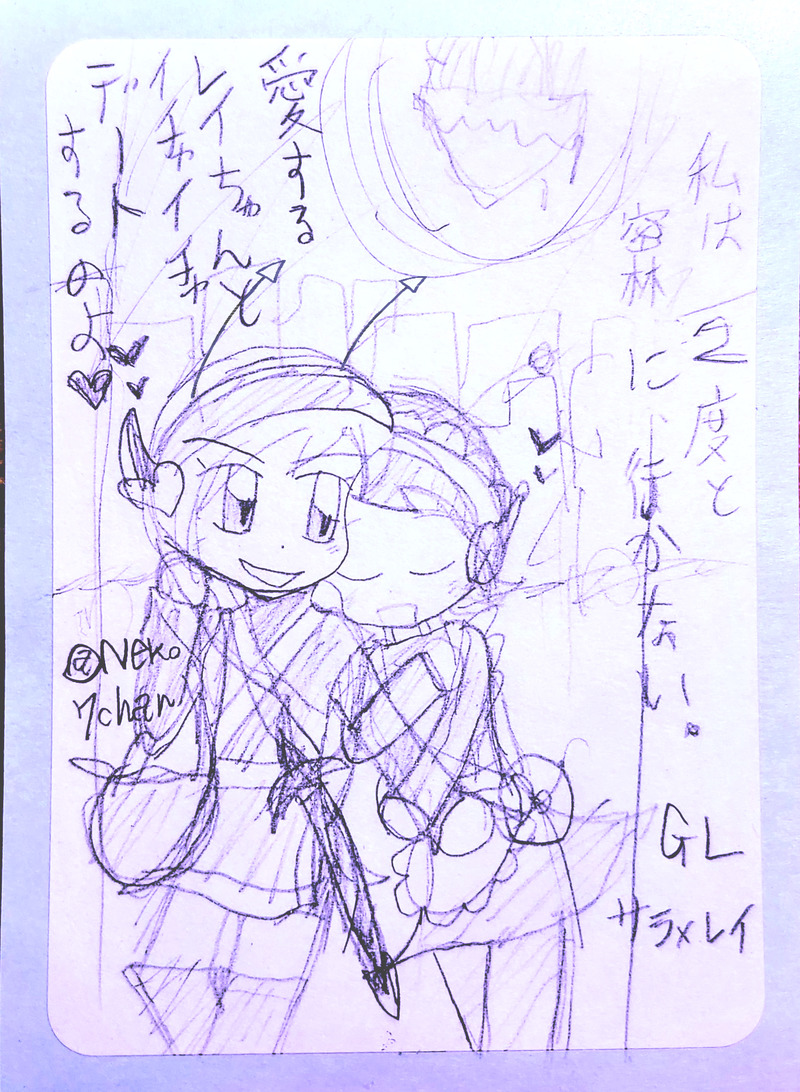 私は
2度と
密林
に行かない。
愛する
レイちゃんと
イチャイチャ
デート
するのよ
@Neko
7chan
GL
サラ×レイ